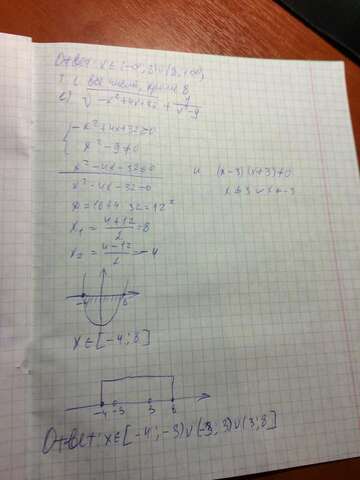 Ответ: x∈(-∞; 8)∪(8, +∞)
т. е. все числа, кроме 8
e) √-x²+4x+32 + 1/x²-9
-x²+4x+32≥0
x²-9≠0
x²-4x-32≤0 и (x-3)(x+3)≠0
x²-4x-32=0 x≠3 x≠-3
D=16+4·32=12²
x₁ = 4+12/2 = 8
x₂ = 4-12/2 = -4
-4 8
x∈[-4; 8]
-4 -3 3 8
Ответ: x∈[-4; -3)∪(-3; 3)∪(3; 8]